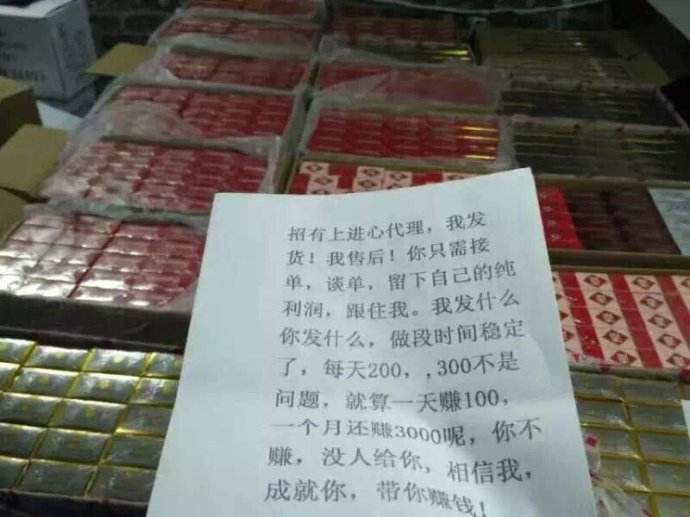 招有上进心代理，我发
货！我售后！你只需接
单，谈单，留下自己的纯
利润，跟住我。我发什么
你发什么，做段时间稳定
了，每天200，,300不是
问题，就算一天赚100，
一个月还赚3000呢，你不
赚，没人给你，相信我，
成就你，带你赚钱！